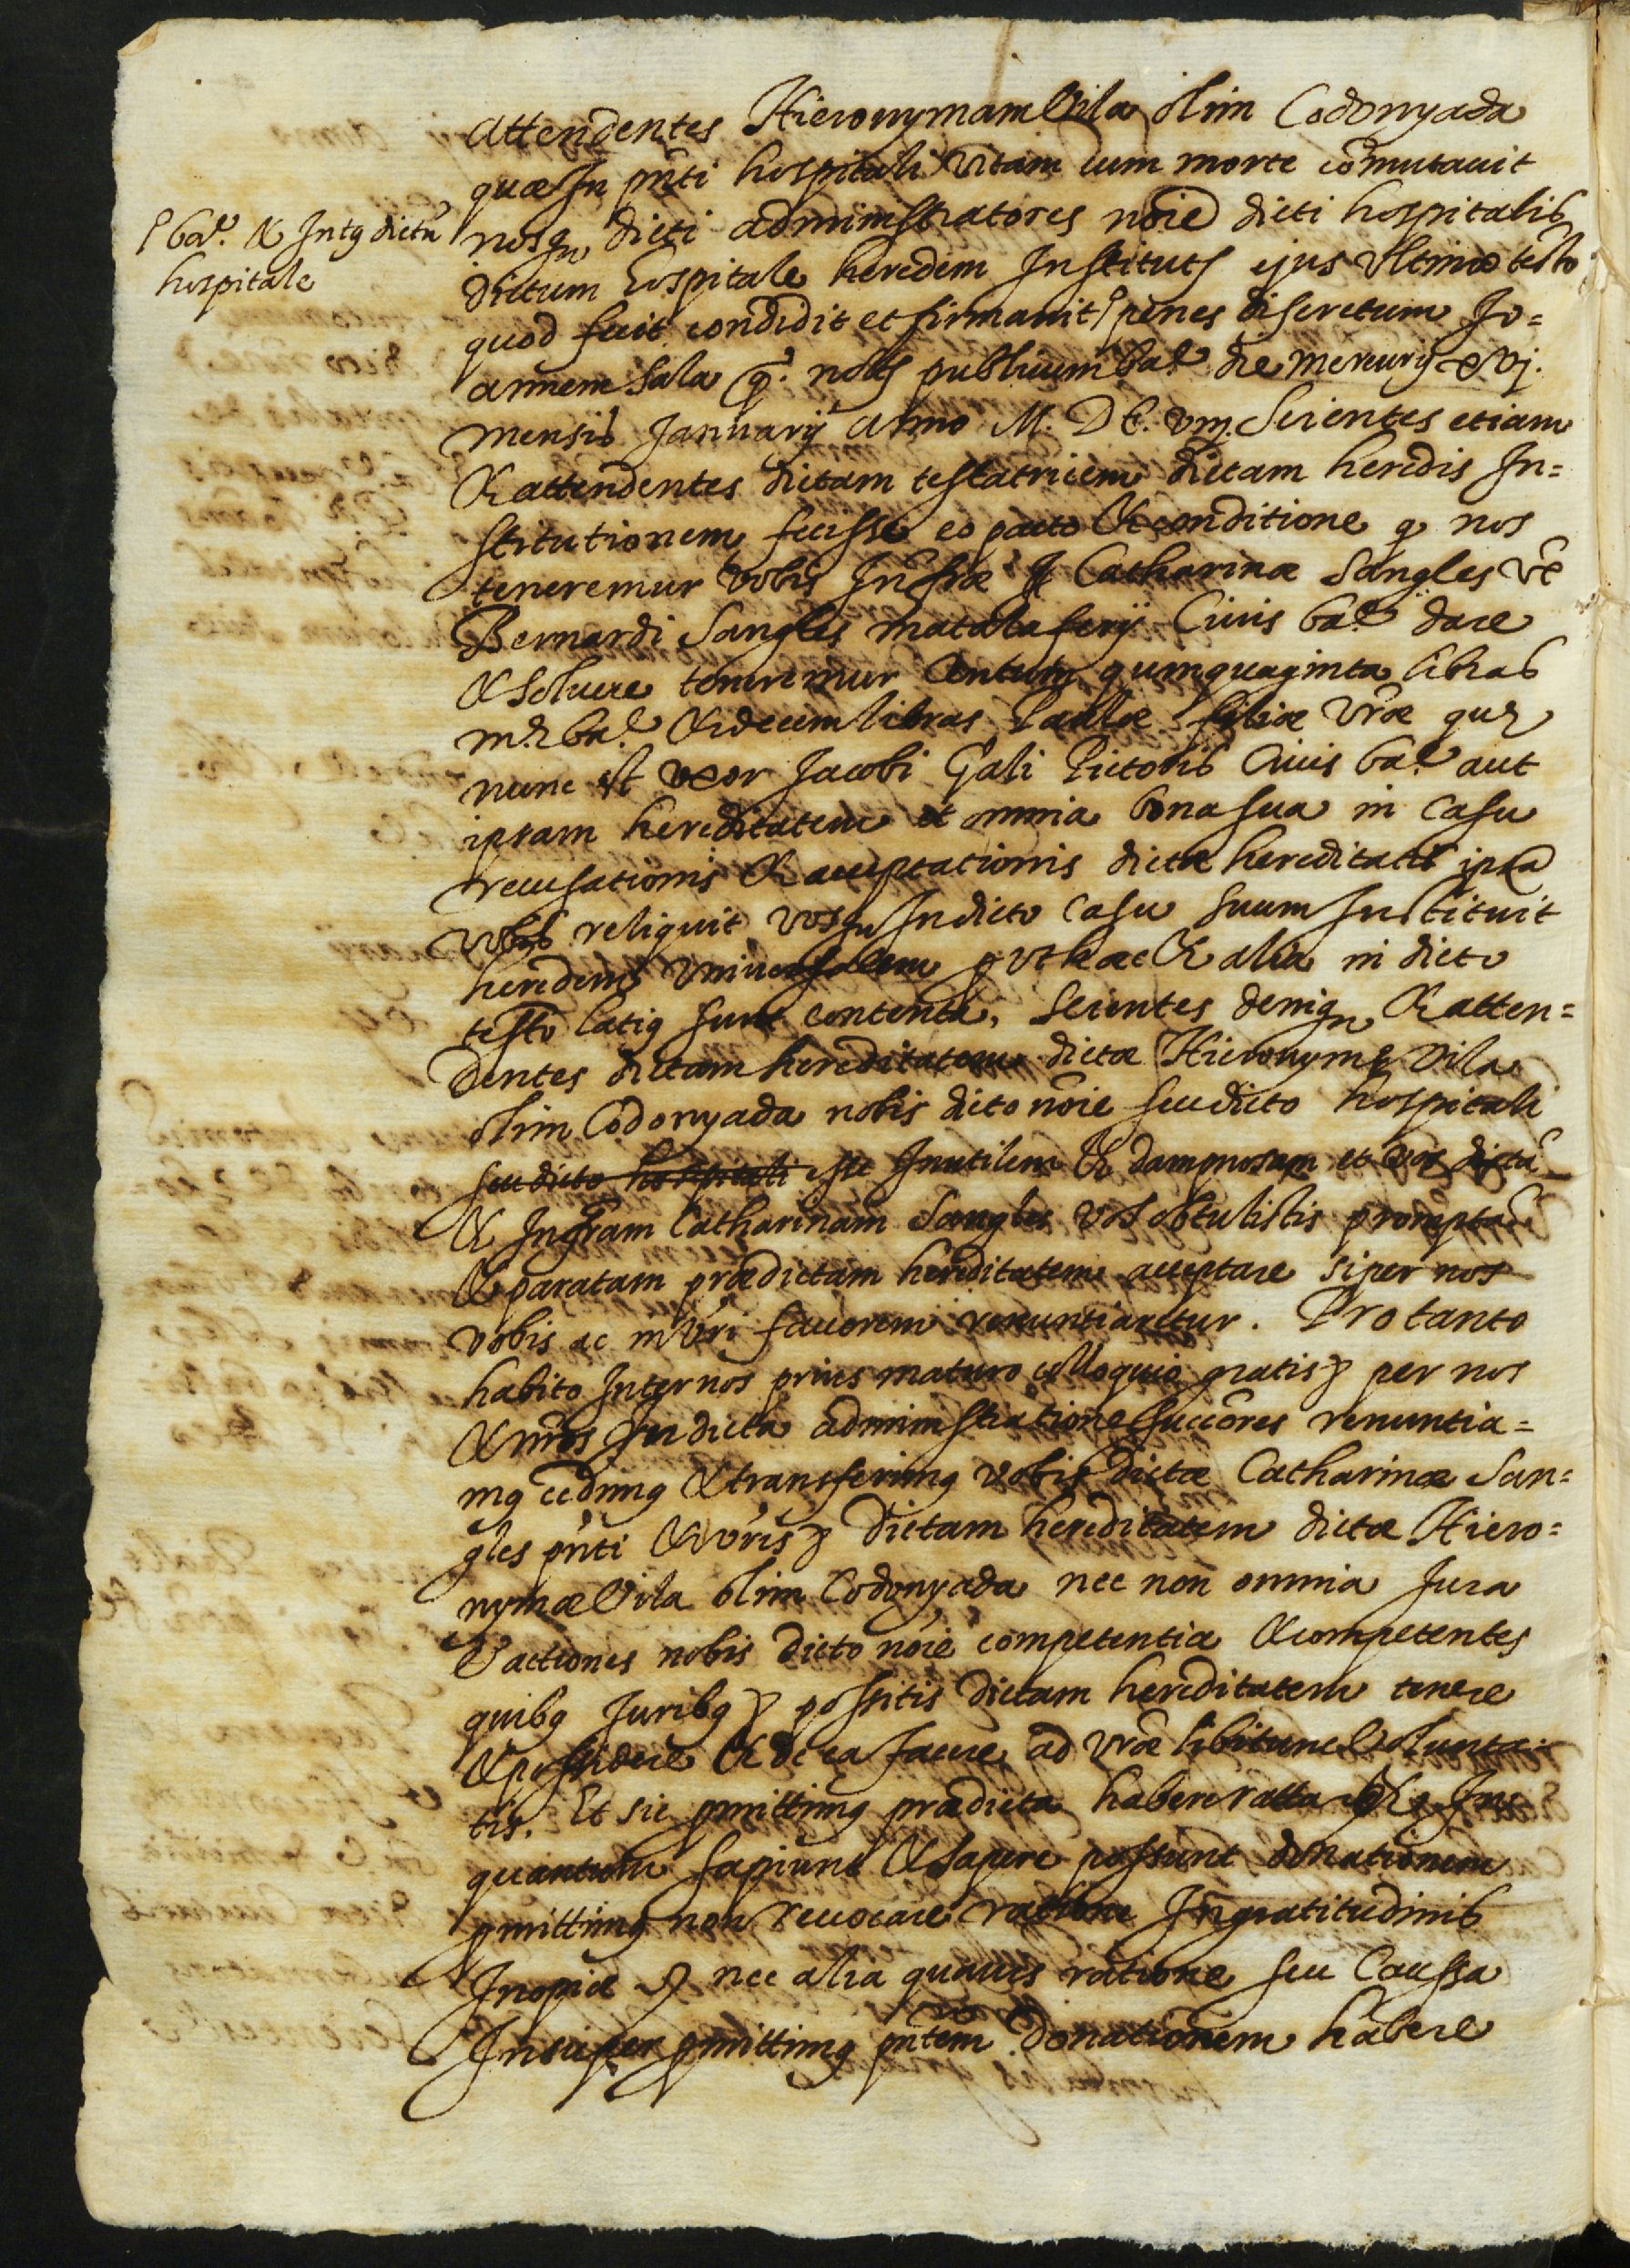 attendentes Hieronymam Vila olim Codonyada
quæ In pñti hospitali vitam cum morte cõmutavit
nosq dicti administratores nõie dicti hospitalis
⌈bar.e & Intq dictũ
hospitale
dictum hospitale heredem Instituts ejus ultimo testo
quod fecit condidit et firmavit ⌈ penes discretum Jo=
annem Sala q.o notũ publicum bar.e die mercurij xvj.
mensis Januarij anno M. D C. viij. Scientes etiam
& attendentes dictam testatricem dictam heredis In=
stitutionem fecisse eo pacto & conditione q nos
teneremur vobis Infræ Catharinæ Sangles vẽ
Bernardi Sangles matalaferij Civis bar.e dare
& solvere teneremur Centum quinquaginta libras
m.e bar.e & decem libras Paulæ filiæ vr̃æ quę
nunc est uxor Jacobi Gali Pictoris Civis bar.e aut
ipsam hereditatem et omnia bona sua in casu
recusationis & acceptationis dictæ hereditatis ipsa
vobis reliquit vosq In dicto casu suum Instituit
heredem universalem q ut hæc & alia in dicto
testo latiq sunt contenta, Scientes deniq & atten=
dentes dictam hereditatem dictæ Hieronymę Vila
olim Codonyada nobis dicto nõie seu dicto hospitali
seu dicto hospitali esse Inutilem & dampnosam et vos dictã
& Infram Catharinam Sangles vos obtulistis promptã
& paratam prædictam hereditatem acceptare si per nos
vobis ac in vr̃i favorem renuntiaretur. Pro tanto
habito Inter nos prius maturo colloquio gratis & per nos
& nr̃os In dicta administratione succẽres renuntia=
mq cedimq & transferimq vobis dictæ Catharinæ San=
gles pñti & vr̃is & dictam hereditatem dictæ Hiero=
nymæ Vila olim Codonyada nec non omnia Jura
& actiones nobis dicto nõie competentia & competentes
quibq Juribq & possitis dictam hereditatem tenere
& possidere & de ea facere ad vr̃æ libitum volunta=
tis. Et sic pmittimq prædicta habere ratta & In
quantum sapiunt & sapere possunt donationem
pmittimq non revocare ratione Ingratitudinis
Inopiæ & nec alia quavis ratione seu Caussa
Insuper pmittimq pñtem donationem habere